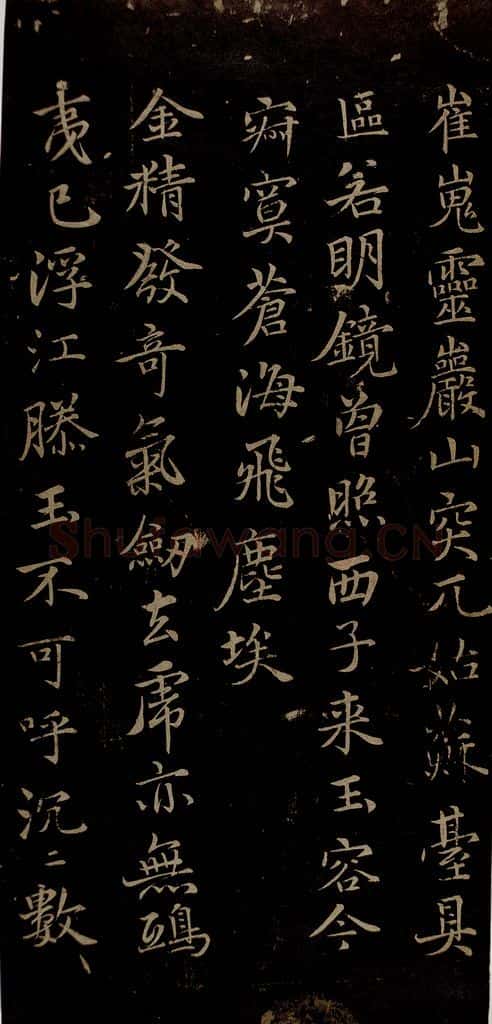 崔嵬靈巖山突兀姑蘇臺具
區若明鏡曾照西子来玉容今
寂寞蒼海飛塵埃
金精發奇氣劔去虎亦無鴟
夷已浮江膝玉不可呼沉二數
Shufawang.CN